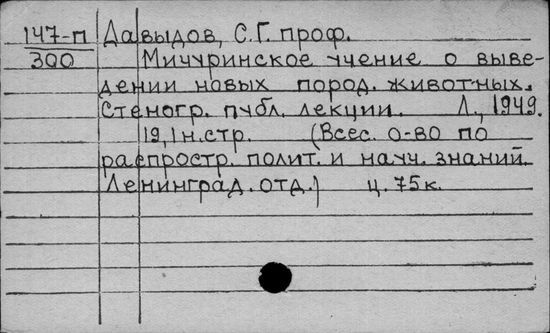 147-п Давыдов, С.Г. проф.
300 Мичуринское учение о выве-
дении новых пород. животных.
Стеногр. публ. лекции. Л., 1949.
19,1н.стр. (Всес. о-во по
распростр. полит. и научн. знаний.
Ленинград. отд.) ц. 75к.